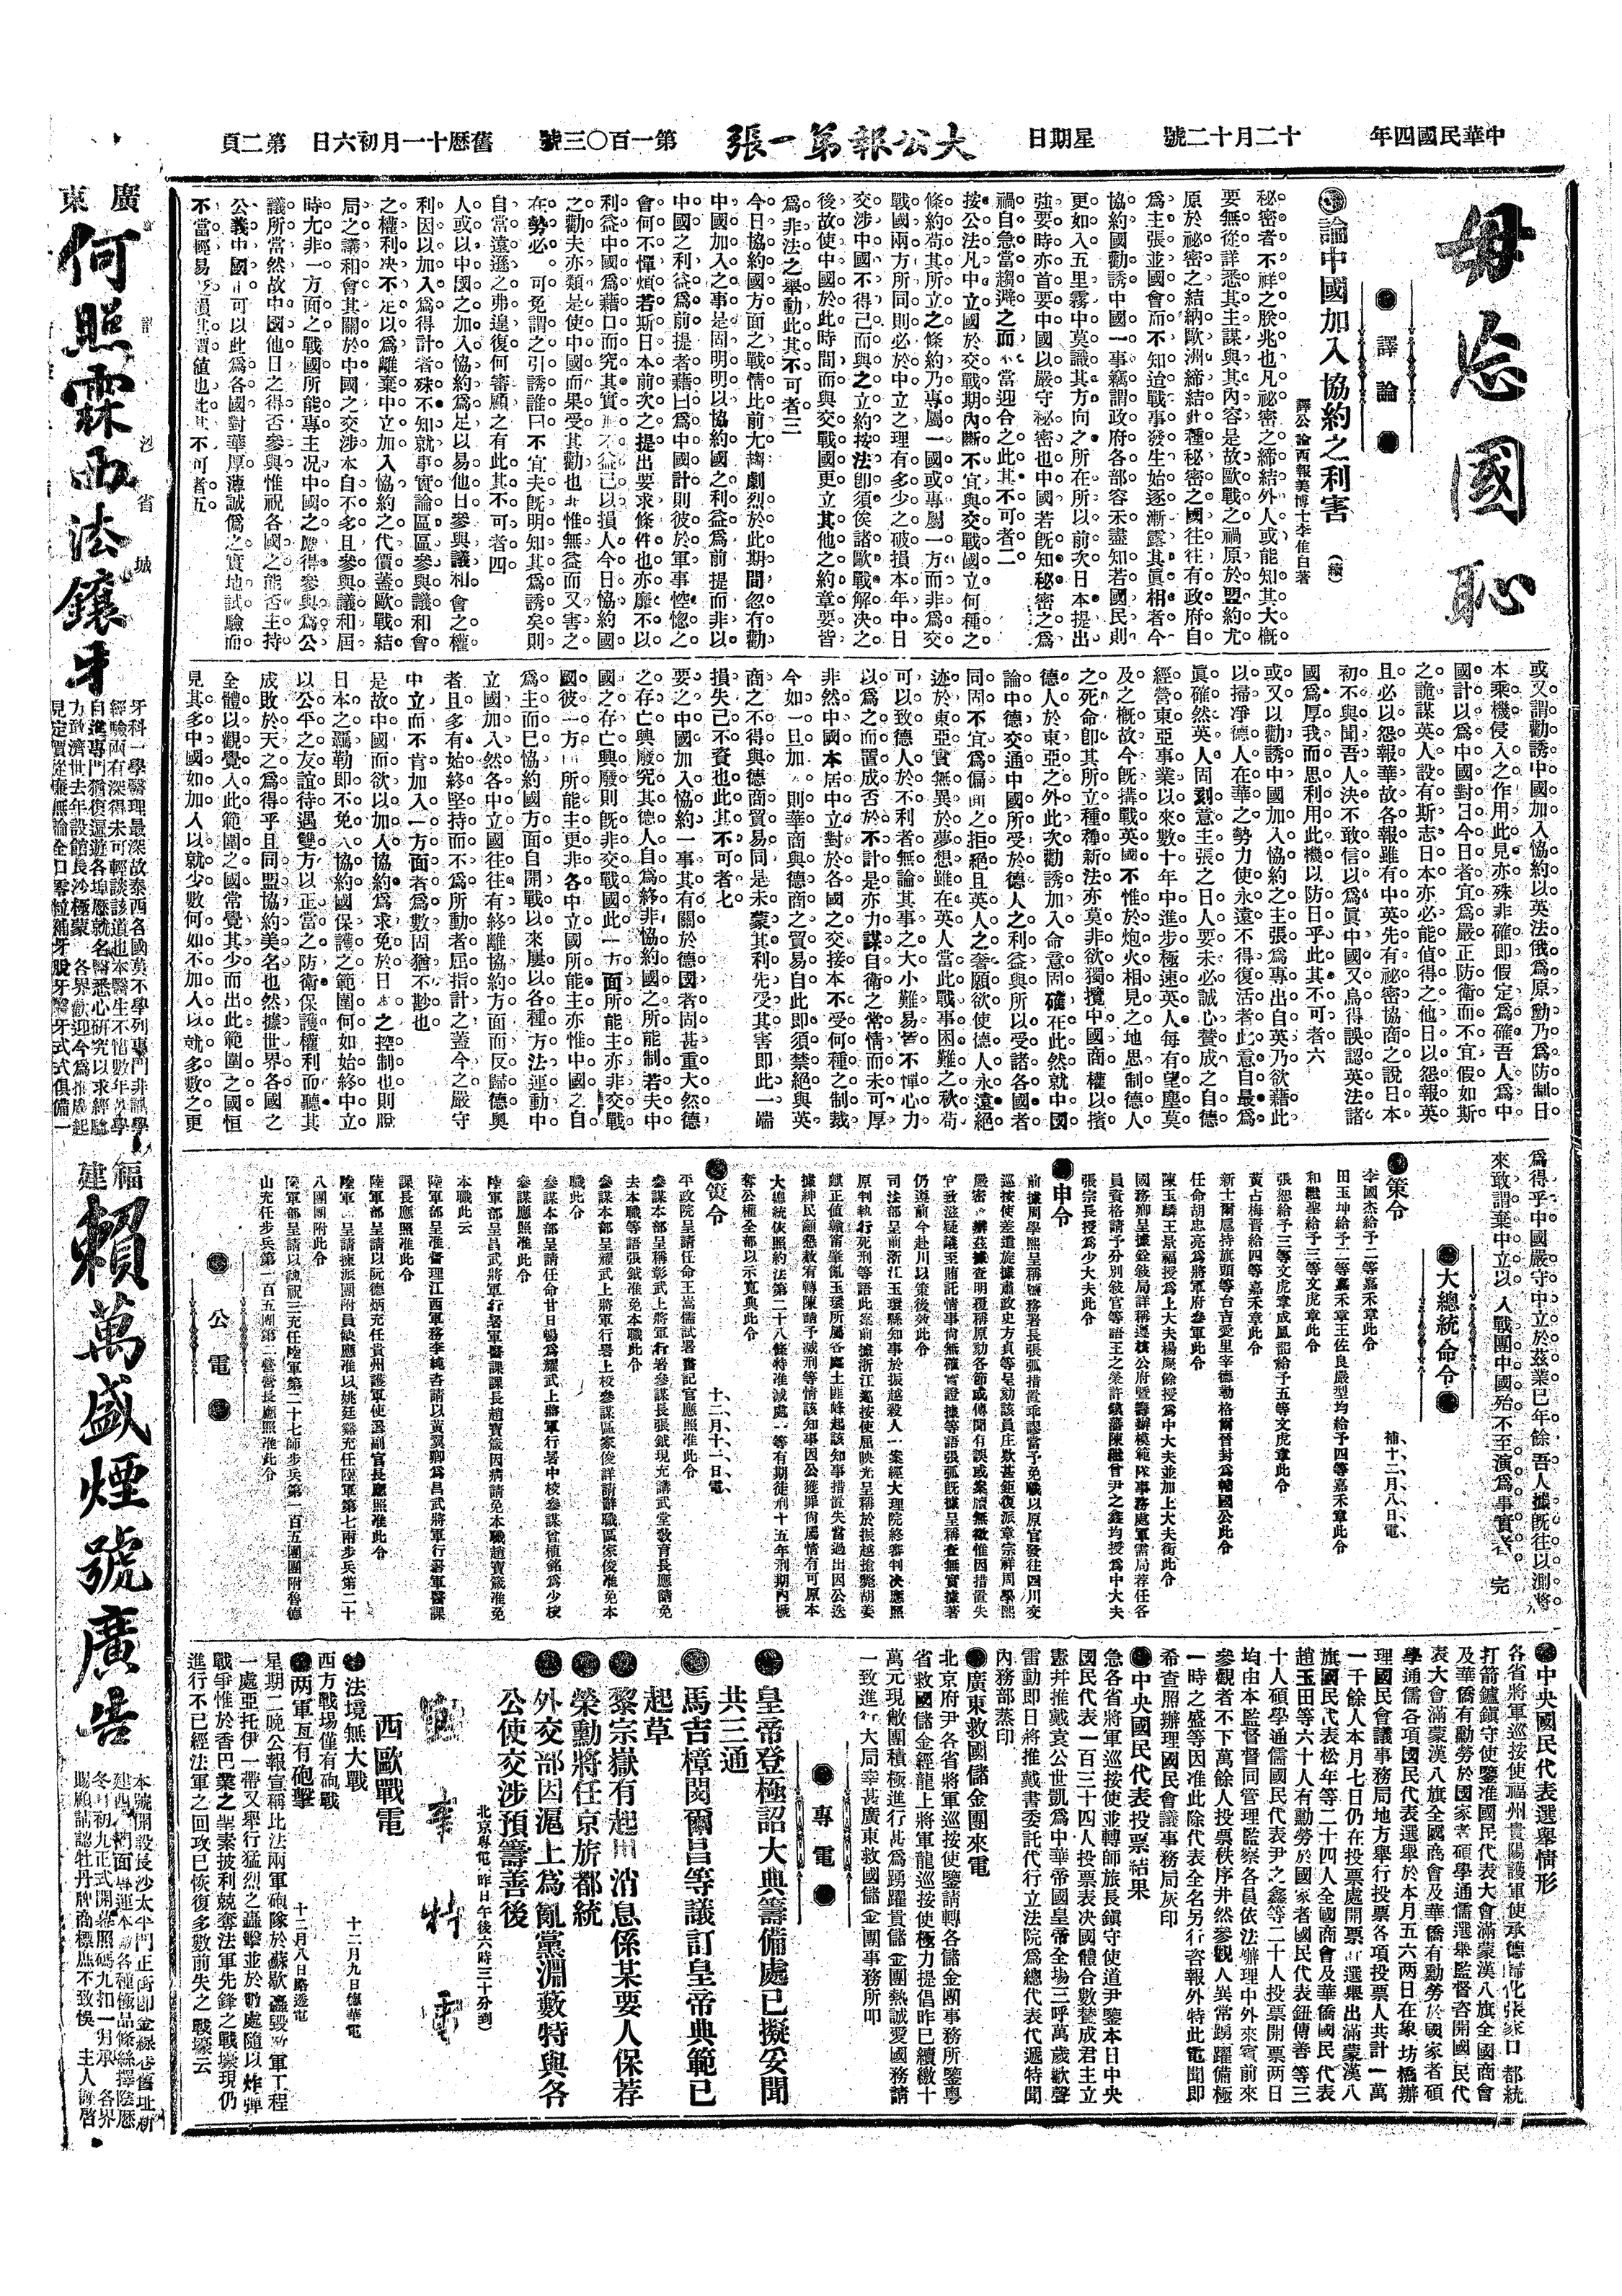 中華民國四年
十二月十二號
星期日
大公報第一張
第一百〇三號
舊歷十一月初六日
第二頁
毋忘國恥
譯論
論中國加入協約之利害 (續)
譯公論西報美博士李佳白著
秘密者不祥之朕兆也凡祕密之締結外人或能知其大概
要無從詳悉其主謀與其內容是故歐戰之禍原於盟約尤
原於祕密之結納歐洲締結此種秘密之國往往有政府自
為主張並國會而不知迨戰事發生始逐漸露其眞相者今
協約國勸誘中國一事竊謂政府各部容未盡知若國民則
更如入五里霧中莫識其方向之所在所以前次日本提出
強要時亦首要中國以嚴守秘密也中國若旣知秘密之為
禍自急當趨避之而不當迎合之此其不可者二
按公法凡中立國於交戰期內斷不宜與交戰國立何種之
條約苟其所立之條約乃專屬一國或專屬一方而非為交
戰國兩方所同則必於中立之理有多少之破損本年中日
交涉中國不得已而與之立約按法卽須俟諸歐戰解決之
後故使中國於此時間而與交戰國更立其他之約章要皆
為非法之舉動此其不可者三
今日協約國方面之戰情比前尤趨劇烈於此期間忽有勸
中國加入之事是固明明以協約國之利益為前提而非以
中國之利益為前提者藉曰為中國計則彼於軍事悾惚之
會何不憚煩若斯日本前次之提出要求條件也亦靡不以
利益中國為藉口而究其實則不益己以損人今日協約國
之勸夫亦類是使中國而果受其勸也非惟無益而又害之
在勢必 可免謂之引誘誰曰不宜夫旣明知其為誘矣則
自當遠遜之弗遑復何審顧之有此其不可者四
人或以中國之加入協約為足以易他日參與議和會之權
利因以加入為得計者殊不知就事實論區區參與議和會
之權利决不足以為離棄中立加入協約之代價蓋歐戰結
局之議和會其關於中國之交涉本自不多且參與議和屆
時尤非一方面之戰國所能專主况中國之應得參與為公
議所當然故中國他日之得否參與惟祝各國之能否主持
公義中國正可以此為各國對華厚薄誠僞之實地試驗而
不當輕易貶損其價值也此其不可者五
或又謂勸誘中國加入協約以英法俄為原動乃為防制日
本乘機侵入之作用此見亦殊非確卽假定為確吾人為中
國計以為中國對日今日者宜為嚴正防衛而不宜假如斯
之詭謀英人設有斯志日本亦必能偵得之他日以怨報英
且必以怨報華故各報雖有中英先有祕密協商之說日本
初不與聞吾人決不敢信以為眞中國又烏得誤認英法諸
國為厚我而思利用此機以防日乎此其不可者六
或又以勸誘中國加入協約之主張為專出自英乃欲藉此
以掃凈德人在華之勢力使永遠不得復活者此意自最為
眞確然英人固刻意主張之日人要未必誠心贊成之自德
經營東亞事業以來數十年中進步極速英人每有望塵莫
及之概故今旣搆戰英國不惟於炮火相見之地思制德人
之死命卽其所立種種新法亦莫非欲獨攬中國商權以擯
德人於東亞之外此次勸誘加入命意固確在此然就中國
論中德交通中國所受於德人之利益與所以受諸各國者
同固不宜為偏面之拒絕且英人之奢願欲使德人永遠絕
迹於東亞實無異於夢想雖在英人當此戰事困難之秋苟
可以致德人於不利者無論其事之大小難易皆不憚心力
以為之而置成否於不計是亦力謀自衛之常情而未可厚
非然中國本居中立對於各國之交接本不受何種之制裁
今如一旦加入則華商與德商之貿易自此卽須禁絕與英
商之不得與德商貿易同是未蒙其利先受其害卽此一端
損失已不資也此其不可者七
要之中國加入協約一事其有關於德國者固甚重大然德
之存亡興廢究其德人自為終非協約國之所能制若夫中
國之存亡興廢則旣非交戰國此一方面所能主亦非交戰
國彼一方面所能主更非各中立國所能主亦惟中國之自
為主而已協約國方面自開戰以來屢以各種方法運動中
立國加入然各中立國往往有終離協約方面而反歸德奧
者且多有始終堅持而不為所動者屈指計之蓋今之嚴守
中立而不肯加入一方面者為數固猶不尠也
是故中國而欲以加入協約為求免於日本之控制也則脫
日本之羈勒卽不免入協約國保護之範圍何如始終中立
以公平之友誼待遇雙方以正當之防衛保護權利而聽其
成敗於天之為得乎且同盟協約美名也然據世界各國之
全體以觀覺入此範圍之國常覺其少而出此範圍之國恒
見其多中國如加入以就少數何如不加入以就多數之更
為得乎中國嚴守中立於茲業已年餘吾人據旣往以測將
來敢謂棄中立以入戰團中國殆不至演為事實者 完
大總統命令
補十二月八日電
策令
李國杰給予二等嘉禾章此令
田玉坤給予二等嘉禾章王佐良嚴型均給予四等嘉禾章此令
和繼聖給予三等文虎章此令
張恕給予三等文虎章成風韶給予五等文虎章此令
黃占梅晋給四等嘉禾章此令
新士爾扈持旗頭等台吉愛里宰德勒格爾晉封為輔國公此令
任命胡忠亮為將軍府參軍此令
陳玉麟王景福授為上大夫楊聚餘授為中大夫並加上大夫銜此令
國務卿呈據銓敍局詳稱遵核公府暨籌辦模範隊事務處軍需局荐任各
員資格請予分別敍官等語王之榮許鎮藩陳繼曾尹之鑫均授為中大夫
張宗長授為少大夫此令
申令
前據周學熙呈稱鹽務署長張弧措置乖謬當予免職以原官發往四川交
巡按使差遣旋據肅政史方貞等呈劾該員庄欵甚鉅復派章宗祥周學熙
嚴密查辦茲據查明覆稱原劾各節或傳聞有誤或案牘無徵惟因措置失
宜致滋疑議至賄託情事尙無確實證據等語張弧旣據呈稱查無實據著
仍遵前令赴川以策後效此令
司法部呈前浙江玉環縣知事於振越殺人一案經大理院終審判決應照
原判執行死刑等語此案前據浙江巡按使屈映光呈稱於振越搶斃胡姜
麒正値餉甯肇亂玉環所屬各處土匪峰起該知事措置失當過出因公迭
據紳民籲懇赦宥轉陳請予減刑等情該知事因公獲罪尙屬情有可原本
大總統依照約法第二十八條特准減處一等有期徒刑十五年刑期內褫
奪公權全部以示寬典此令
十二月十一日電
策令
平政院呈請任命王嵩儒試署書記官應照准此令
參謀本部呈稱彰武上將軍行署參謀長張鉞現充講武堂敎育長應請免
去本職等語張鉞准免本職此令
參謀本部呈耀武上將軍行署上校參謀區家俊詳請辭職區家俊准免本
職此令
參謀本部呈請任命甘日暢為耀武上將軍行署中校參謀曾植銘為少校
參謀應照准此令
陸軍部呈昌武將軍行署軍醫課課長趙寶箴因病請免本職趙寶箴准免
本職此云
陸軍部呈准督理江西軍務李純咨請以黃翼卿為昌武將軍行署軍醫課
課長應照准此令
陸軍部呈請以阮德炳充任貴州護軍使署副官長應照准此令
陸軍部呈請揀派團附員缺應准以姚廷谿充任陸軍第七兩步兵第二十
八團團附此令
陸軍部呈請以魏祝三充任陸軍第二十七師步兵第一百五團團附督德
山充任步兵第一百五團第二營營長應照准此令
公電
中央國民代表選舉情形
各省將軍巡按使福州貴陽護軍使承德歸化張家口都統
打箭鑪鎮守使鑒准國民代表大會滿蒙漢八旗全國商會
及華僑有勳勞於國家者碩學通儒選舉監督咨開國民代
表大會滿蒙漢八旗全國商會及華僑有勳勞於國家者碩
學通儒各項國民代表選舉於本月五六兩日在象坊橋辦
理國民會議事務局地方舉行投票各項投票人共計一萬
一千餘人本月七日仍在投票處開票計選舉出滿蒙漢八
旗國民代表松年等二十四人全國商會及華僑國民代表
趙玉田等六十人有勳勞於國家者國民代表鈕傳善等三
十人碩學通儒國民代表尹之鑫等二十人投票開票兩日
均由本監督督同管理監察各員依法辦理中外來賓前來
參觀者不下萬餘人投票秩序井然參觀人異常踴躍備極
一時之盛等因准此除代表全名另行咨報外特此電聞卽
希查照辦理國民會議事務局灰印
中央國民代表投票結果
急各省將軍巡按使並轉師旅長鎮守使道尹鑒本日中央
國民代表一百三十四人投票表决國體合數贊成君主立
憲并推戴袁公世凱為中華帝國皇帝全場三呼萬歲歡聲
雷動卽日將推戴書委託代行立法院為總代表代遞特聞
內務部蒸印
廣東救國儲金團來電
北京府尹各省將軍巡按使鑒請轉各儲金團事務所鑒粵
省救國儲金經龍上將軍龍巡按使極力提倡昨已續繳十
萬元現敝團積極進行甚為踴躍貴儲金團熱誠愛國務請
一致進行大局幸甚廣東救國儲金團事務所叩
專電
皇帝登極詔大典籌備處已擬妥聞
共三通
馬吉樟閔爾昌等議訂皇帝典範已
起草
黎宗嶽有起用消息係某要人保荐
榮勳將任京旂都統
外交部因滬上為亂黨淵藪特與各
公使交涉預籌善後
北京粵電(昨日午後六時三十分到)
西歐戰電
法境無大戰
十二月九日德華電
西方戰場僅有砲戰
兩軍互有砲擊
十二月八日路透電
星期二晚公報宣稱比法兩軍砲隊於蘇歇轟毀敵軍工程
一處亞托伊一帶又舉行猛烈之轟擊並於數處隨以炸彈
戰爭惟於香巴業之聖素披利兢奪法軍先鋒之戰壕現仍
進行不已經法軍之回攻已恢復多數前失之戰壕云
廣東
何照霖西法鑲牙
省城
牙科一學醫理最深故泰西各國莫不學列專門非識學
經驗兩有深得未可輕談該道也本醫生不惜數年久學
自進專門猶復遍遊各埠歷就名醫悉心研究以求經驗
力救濟世去年設館長沙極蒙各界歡迎今為推廣起
見定價從廉無論全口零粒補牙脫牙醫牙式式俱備一
福建
賴萬盛煙號廣告
本號開設長沙太平門正街卽金線巷舊址新
建西式門面專運本廠各種極品條絲擇陰歷
冬月初九正式開幕照碼九扣一归承 各界
賜顧請認牡丹牌商標庶不致悞 主人謹啓